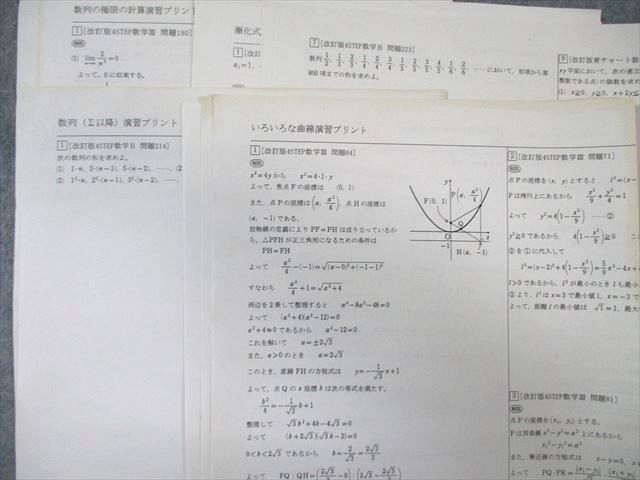 数列の極限の計算演習プリント
1 [改訂版4STEP数学Ⅲ 問題180]
解説
(1) lim n→∞ 2/n²=0
よって，0に収束する。
漸化式
1 [改訂
a₁=1,
7 [改訂版4STEP数学B 問題223]
数列 1/2, 1/3, 2/3, 1/4, 2/4, 3/4, 1/5, 2/5, 3/5, 4/5, 1/6, 2/6, ……において，初項から第
800 項までの和を求めよ。
[改訂版青チャート数
xy平面において，次の連立
整数である点）の個数を求め
(1) x≧0, y≧0, x+2y≦
数列（Σ以降）演習プリント
1 [改訂版4STEP数学B 問題214]
次の数列の和を求めよ。
(1) 1·n, 3·(n-1), 5·(n-2), ……,
(2) 1²·n, 2²·(n-1), 3²·(n-2), ……,
いろいろな曲線演習プリント
1 [改訂版4STEP数学Ⅲ 問題64]
解説
x²=4yから x²=4·1·y
よって，焦点Fの座標は (0, 1)
また，点Pの座標を(a, a²/4)，点Hの座標は
(a, -1)である。
放物線の定義により PF=PH は成り立っているか
ら，△PFHが正三角形になるための条件は
PH=FH
よって a²/4-(-1)=√(a-0)²+(-1-1)²
すなわち a²/4+1=√a²+4
両辺を2乗して整理すると a⁴-8a²-48=0
よって (a²+4)(a²-12)=0
a²+4≠0であるから a²-12=0
これを解いて a=±2√3
また，a>0のとき a=2√3
このとき，直線FHの方程式は y=-1/√3 x+1
よって，点Qのx座標bは次の等式を満たす。
b²/4=-1/√3 b+1
整理して √3b²+4b-4√3=0
よって (b+2√3)(√3b-2)=0
0<b<2√3であるから b=2/√3=2√3/3
よって FQ:QH=(2√3/3-0):(2√3-2√3/3)
y
P(a, a²/4)
F(0, 1)
O
x
-1
H(a, -1)
2 [改訂版4STEP数学Ⅲ 問題71]
解説
点Pの座標を(x, y)とすると l²=(x-
Pは楕円上にあるから x²/9+y²/4=1
よって y²=4(1-x²/9) ……②
y²≧0であるから 4(1-x²/9)≧0
②を①に代入して
l²=(x-2)²+4(1-x²/9)=5/9x²-4x+
l>0であるから，l²が最小のときlも最小
③より，l²はx=3で最小値1，x=-3で
よって，距離lの最小値は √1=1，最大
3 [改訂版4STEP数学Ⅲ 問題81]
解説
点Pの座標を(x₁, y₁)とする。
Pは双曲線x²-y²=a²上にあるから
x₁²-y₁²=a²
また，漸近線の方程式は x-y=0,
よって PQ·PR=